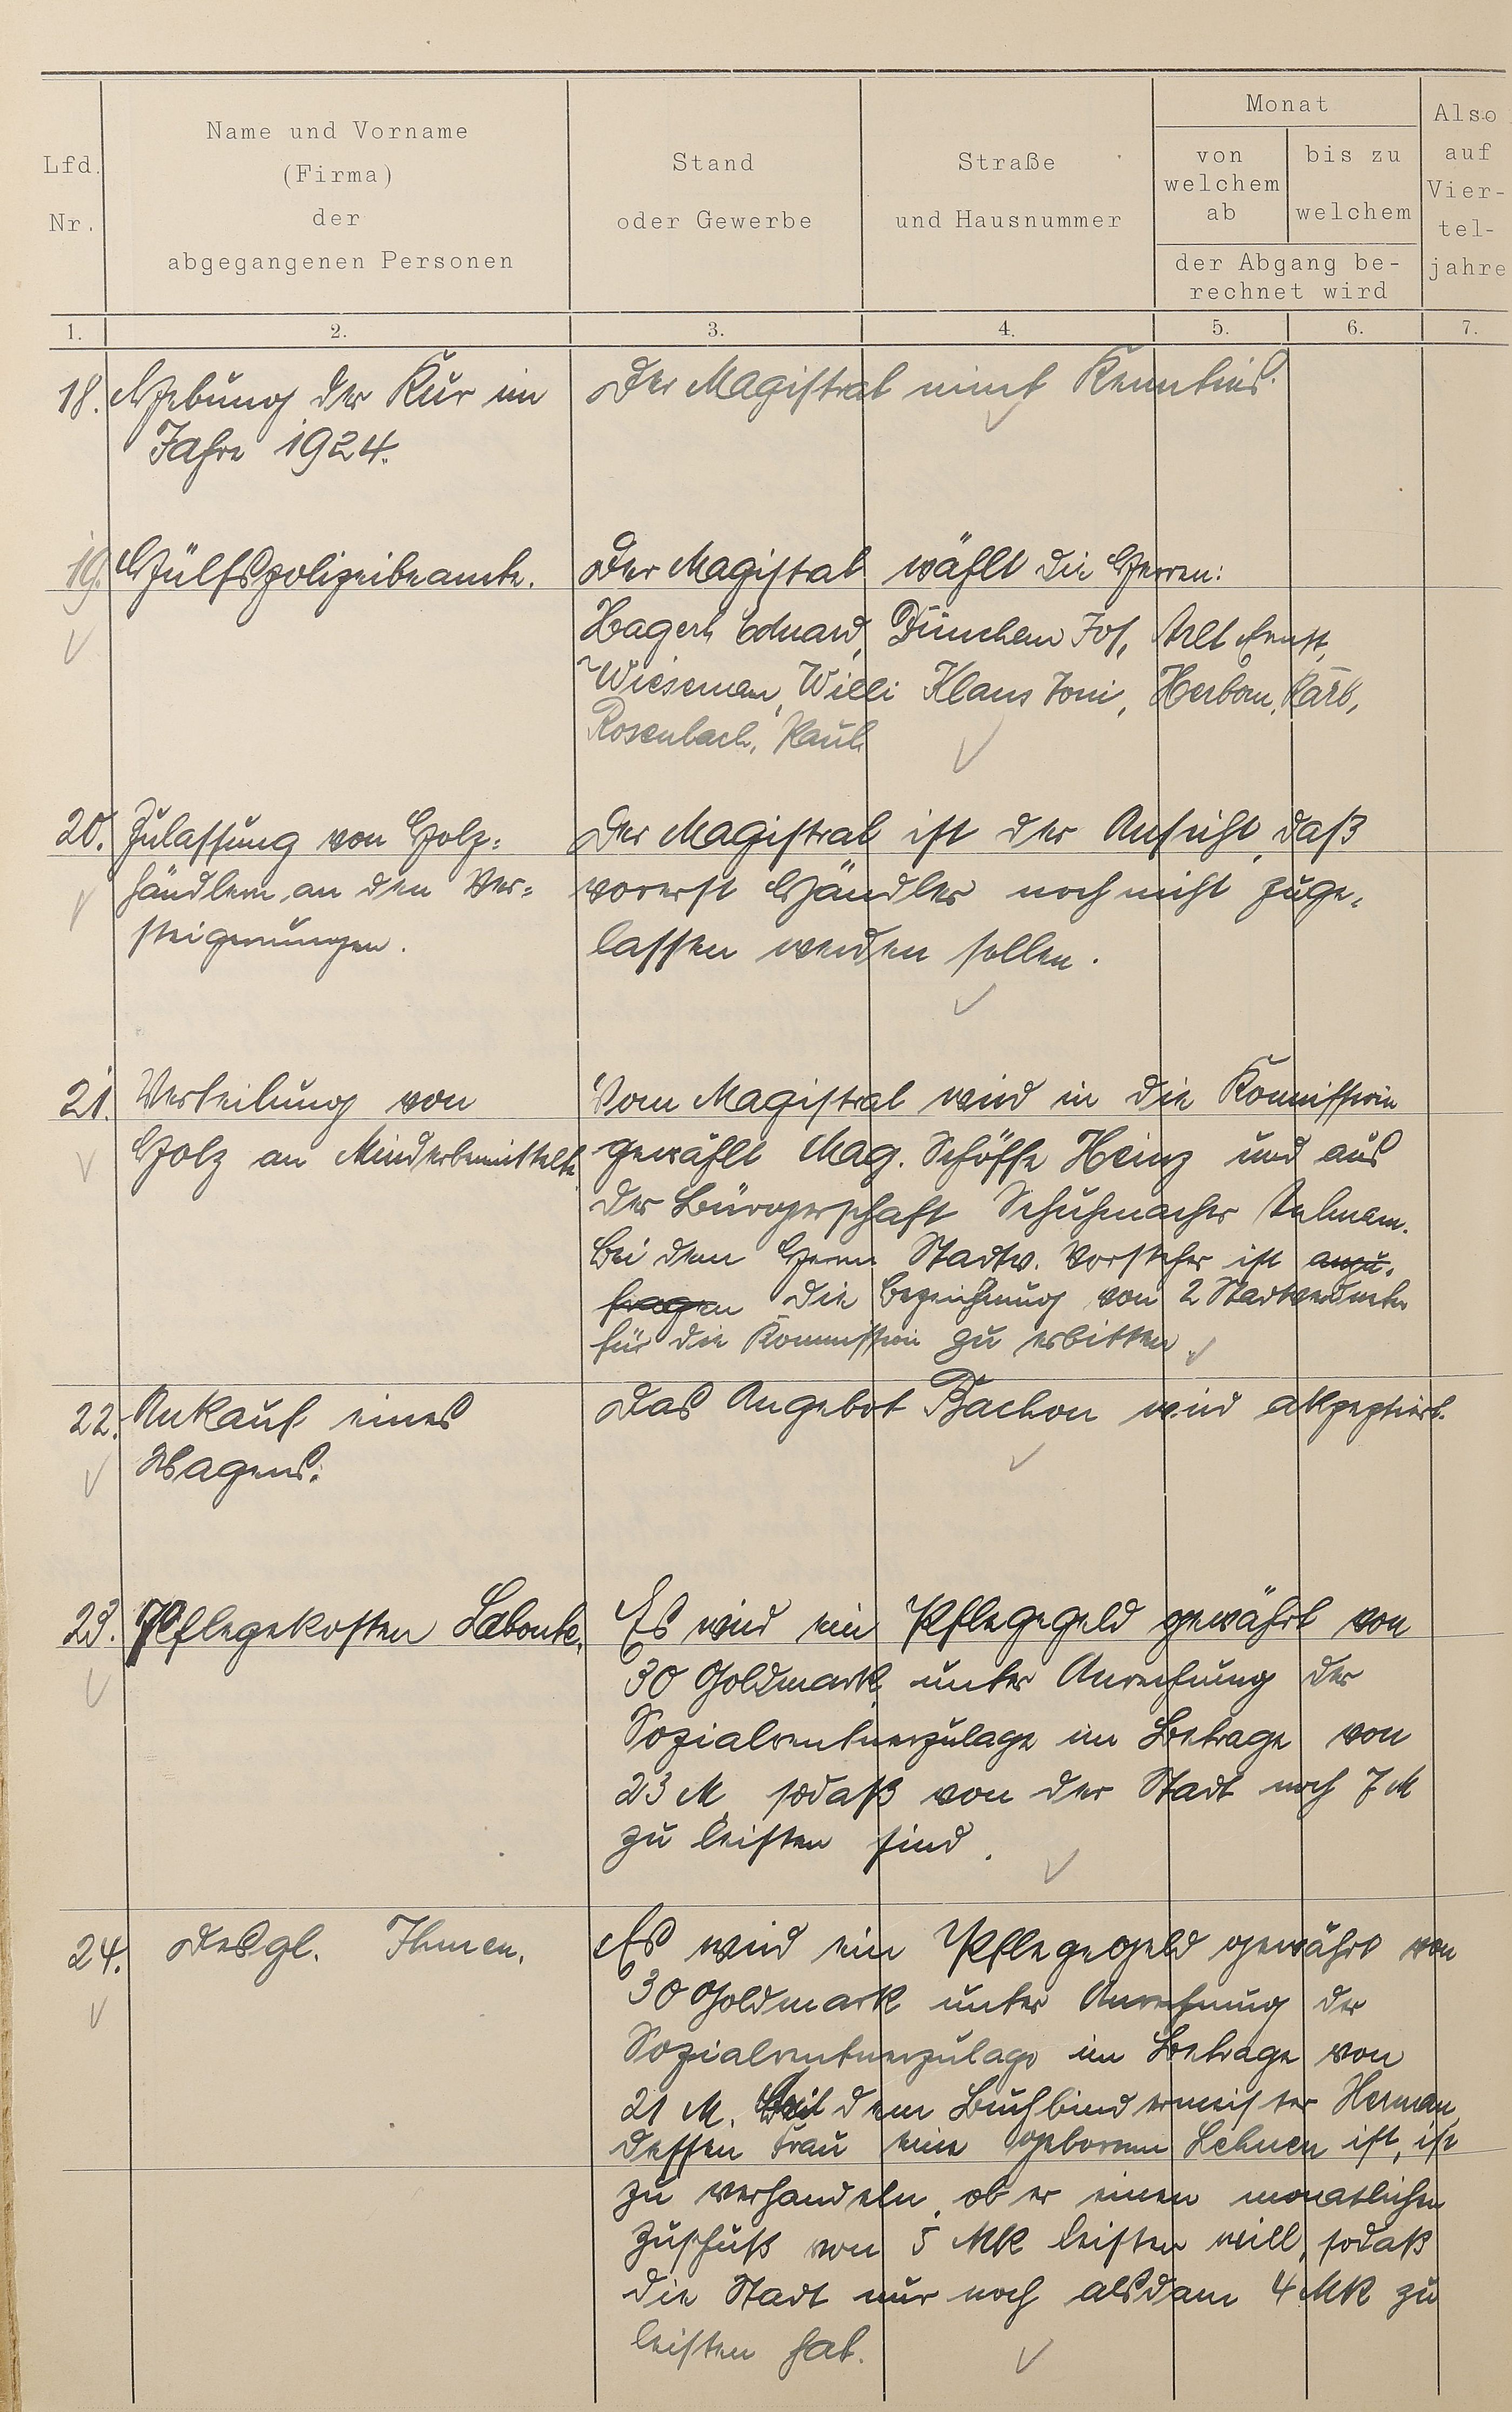 Lfd. Nr.
Name und Vorname
(Firma)
der
abgegangenen Personen
Stand
oder Gewerbe
Straße
und Hausnummer
Monat
von
welchem
ab
bis zu
welchem
der Abgang be-
rechnet wird
Also
auf
Vier-
tel-
jahre
1. 2. 3. 4. 5. 6. 7.
18. Hebung der Kur im
Jahre 1924.
Der Magistrat nimt Kenntnis.
19. Hülfspolizeibeamte.
Der Magistrat wählt die Herren:
Eduard, Dünchem Jos, Arlt Ernst,
Wieseman, Willi Klaus Toni, Herborn, Karl,
Rosenbach, Paul
20. Zulassung von Holz=
händlern an den Ver=
steigerungen.
Der Magistrat ist der Ansicht, daß
vorerst Händler noch nicht zuge-
lassen werden sollen.
21. Verteilung von
Holz an Minderbemittelte.
Vom Magistrat wird in die Kommission
gewählt Mag. Schöffe Heinz und aus
der Bürgerschaft Schuhmacher
Bei dem Herrn Stadtv. Vorsteher ist anzu-
fragen die Bezeichnung von 2 Stadtverordneten
für die Kommission zu erbitten.
22. Ankauf eines
Wagens.
Das Angebot Bachon wird akzeptiert.
23. Pflegekosten Labonte.
Es wird ein Pflegegeld gewährt von
30 Goldmark unter Anrechnung der
Sozialrentnerzulage im Betrage von
23 M, sodaß von der Stadt noch 7 M
zu leisten sind.
24. Desgl. Ihmen.
Es wird ein Pflegegeld gewährt von
30 Goldmark unter Anrechnung der
Sozialrentnerzulage im Betrage von
21 M. Mit dem Buchbindermeister Herman,
dessen Frau eine geborene Lehnen ist, ist
zu verhandeln, ob er einen monatlichen
Zuschuß von 5 Mk leisten will, sodaß
die Stadt nur noch alsdann 4 Mk zu
leisten hat.